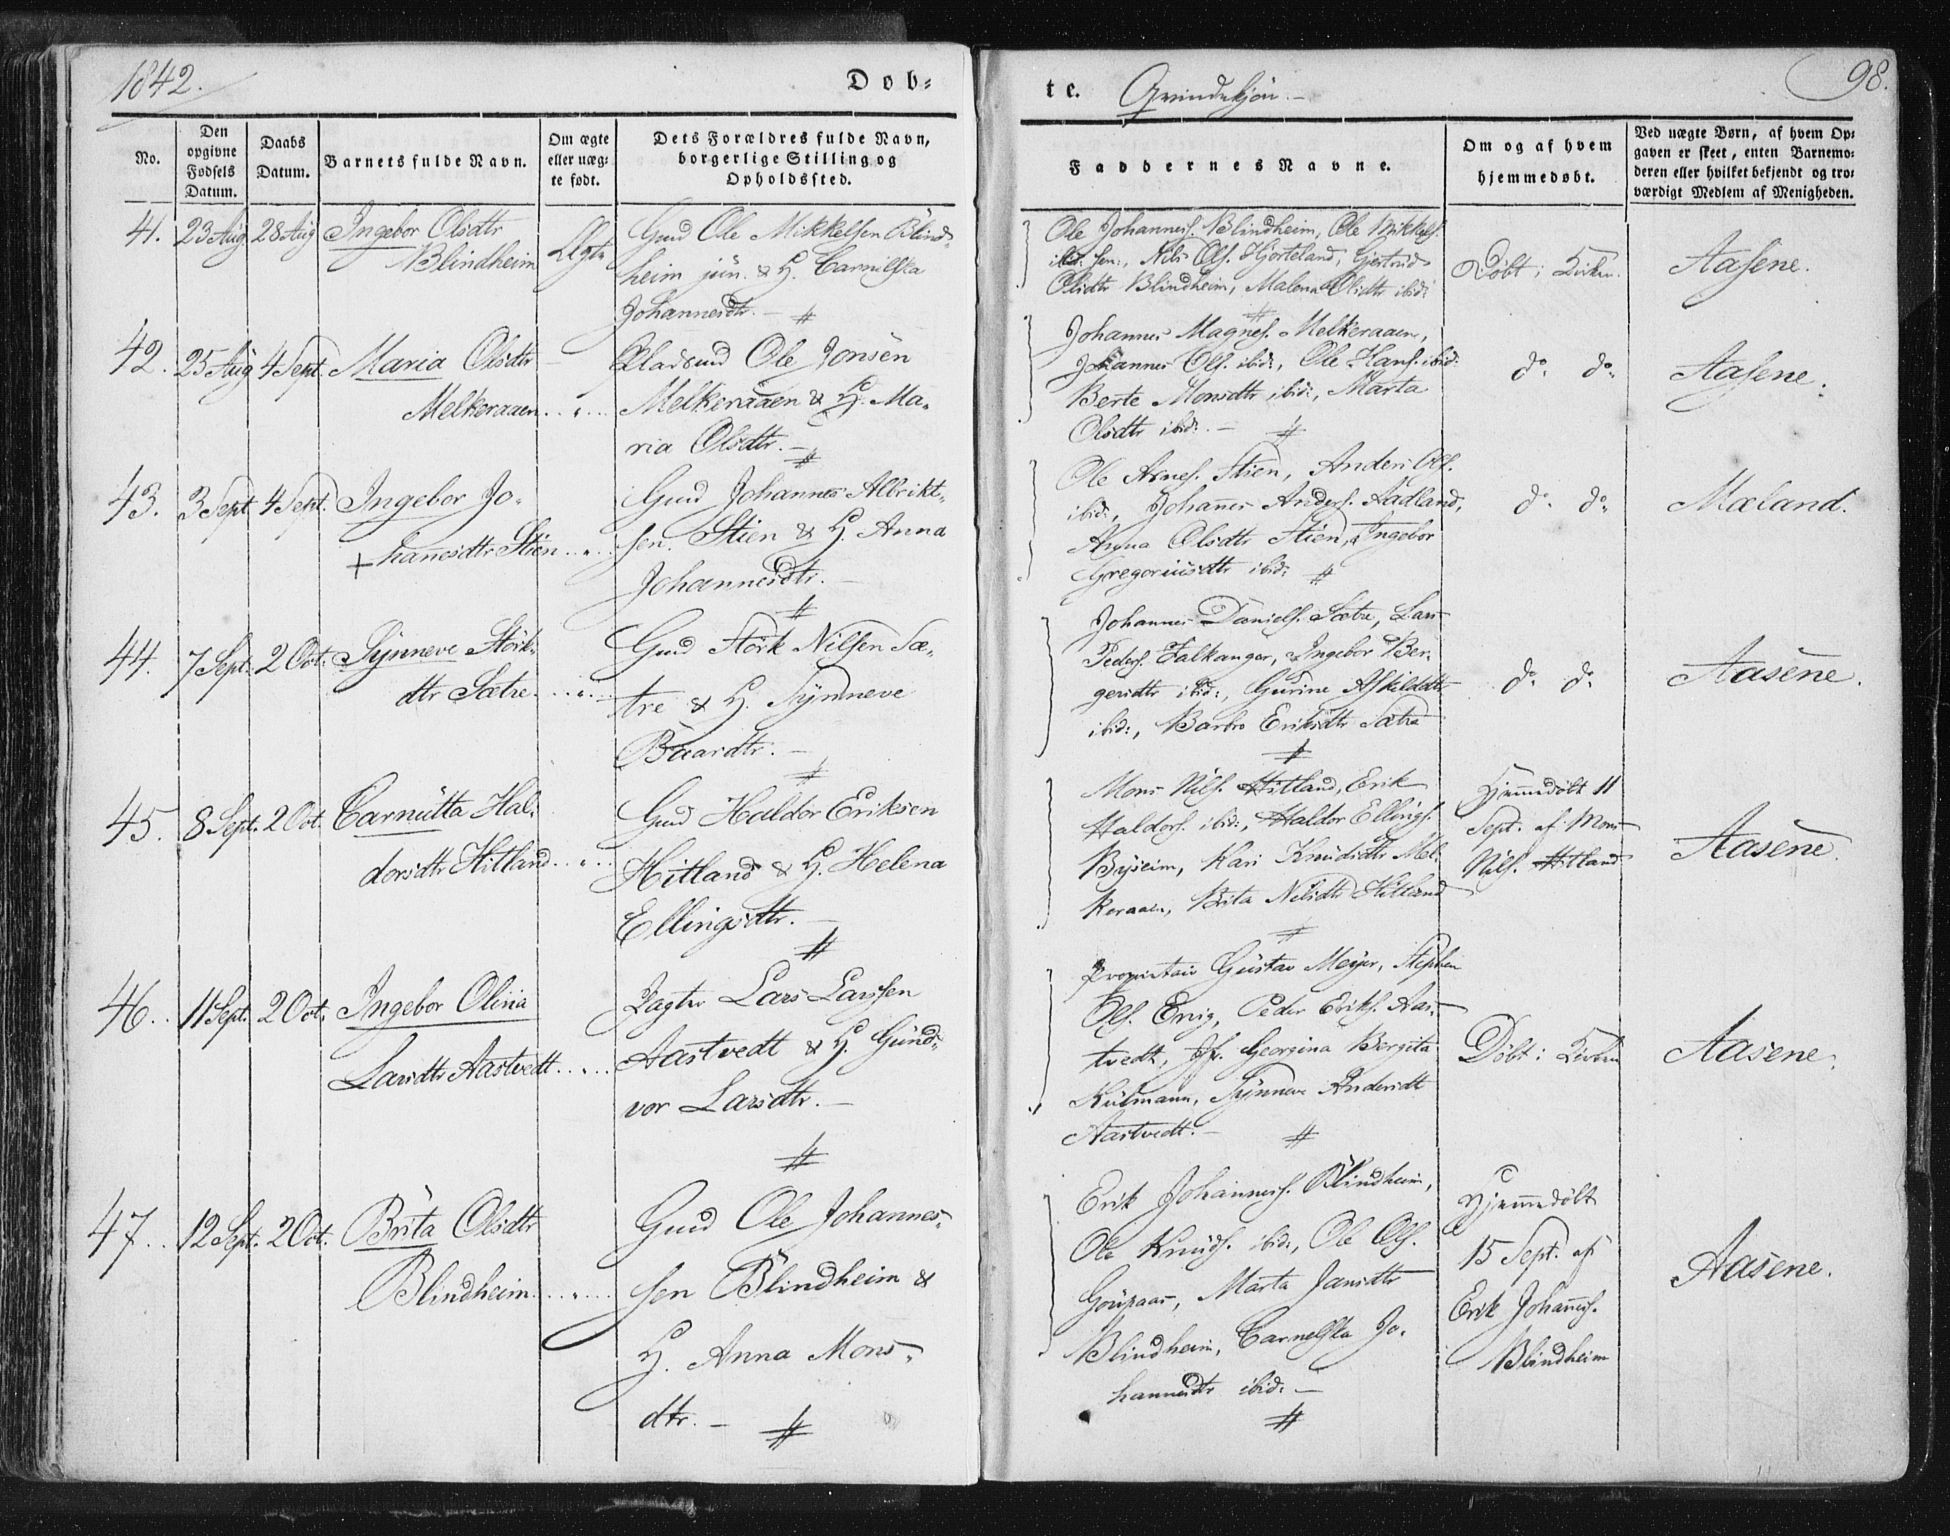 1842.
Dob-
te.
Qvindekjön.
98.
No.
Den opgivne Fødsels Datum.
Daabs Datum.
Barnets fulde Navn.
Om ægte eller uægte født.
Dets Forældres fulde Navn, borgerlige Stilling og Opholdssted.
Faddernes Navne.
Om og af hvem hjemmedøbt.
Ved uægte Børn, af hvem Opgaven er skeet, enten Barnemoderen eller hvilket bekjendt og troværdigt Medlem af Menigheden.
41. 23 Aug 28 Aug Ingebor Olsdtr
Blindheim
Ægte
Gmd Ole Mikkelsen Blind-
heim jün. & H.
Johannesdtr. —
Ole Johanness. Blindheim, Ole Mikkels.
ibid: sen., Nils Ols. Hjorteland, Gjertrud
Olsdtr Blindheim, Malena Olsdtr ibid:
Döbt i Kirken.
Aasene.
42. 25 Aug 4 Sept. Maria Olsdtr
Melkeraaen
Pladsmd Ole Jonsen
Melkeraaen & H. Ma-
ria Olsdtr. —
Johannes Magnes. Melkeraaen,
Johannes Ols. ibid:, Ole Hans. ibid:
Berte Monsdtr ibid:, Marta
Olsdtr ibid: —
do. do.
Aasene.
43. 3 Sept. 4 Sept. Ingebor Jo-
+ hanesdtr Stien
Gmd Johannes Albrikt-
sen Stien & H. Anna
Johannesdtr. —
Ole Arnes. Stien, Anders Ols.
ibid:, Johanes Anders. Aadland,
Anna Olsdtr Stien, Ingebor
Gregoriusdtr ibid:
do. do.
Mæland.
44. 7 Sept. 2 Oct. Synneve Störk-
dtr Sætre
Gmd Störk Nilsen Sæ-
tre & H. Synneve
Baardtr. —
Johannes Daniels. Sætre, Lars
Peders. Falkanger, Ingebor Ber-
gesdtr ibid:, Gurine Askildsdtr
ibid:, Barbro Eriksdtr Sætre
do. do.
Aasene.
45. 8 Sept. 2 Oct. Carnütta Hal-
dorsdtr Hitland
Gmd Haldor Eriksen
Hitland & H. Helena
Ellingsdtr. —
Mons Nils. Hitland, Erik
Haldors. ibid:, Haldor Ellings.
Byseim, Kari Knudsdtr Mel-
keraaen, Brita Nilsdtr Hitland
Hjemmedöbt 11
Sept. af Mons
Nils. Hitland
Aasene.
46. 11 Sept. 2 Oct. Ingebor Olina
Larsdtr Aastvedt
Jagtsr Lars Larssen
Aastvedt & H. Günd-
vor Larsdtr. —
Proprietair Güstav Meyer, Stephen
Ols. Ervig, Peder Eriks. Aas-
tvedt, Jfr. Georgina Bergita
Külmann, Synneve Andersdt
Aastvedt. —
Döbt i Kirken
Aasene.
47. 12 Sept. 2 Oct. Brita Olsdtr
Blindheim
Gmd Ole Johannes-
sen Blindheim &
H. Anna Mons-
dtr. —
Erik Johanness. Blindheim,
Ole Knüds. ibid:, Ole Ols.
Marta Jansdtr
Blindheim, Jo-
hannesdtr ibid: —
Hjemmedöbt
15 Sept. af
Erik Johaness.
Blindheim
Aasene.